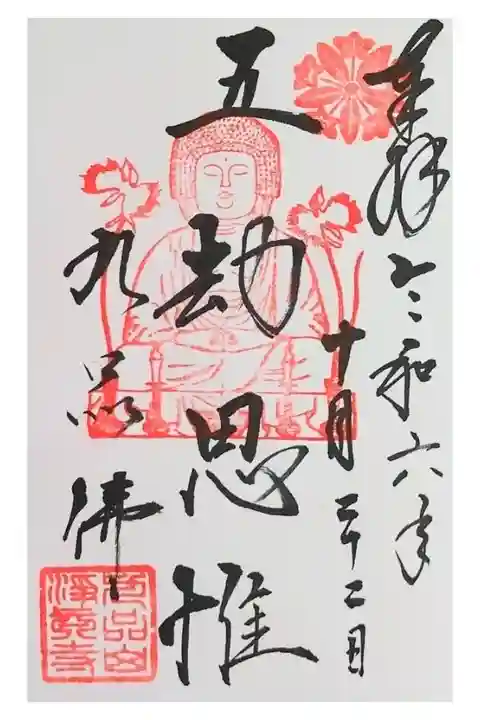 奉拝 令和六年
十月二十二日
五劫思惟
九品佛
九品山
淨真寺